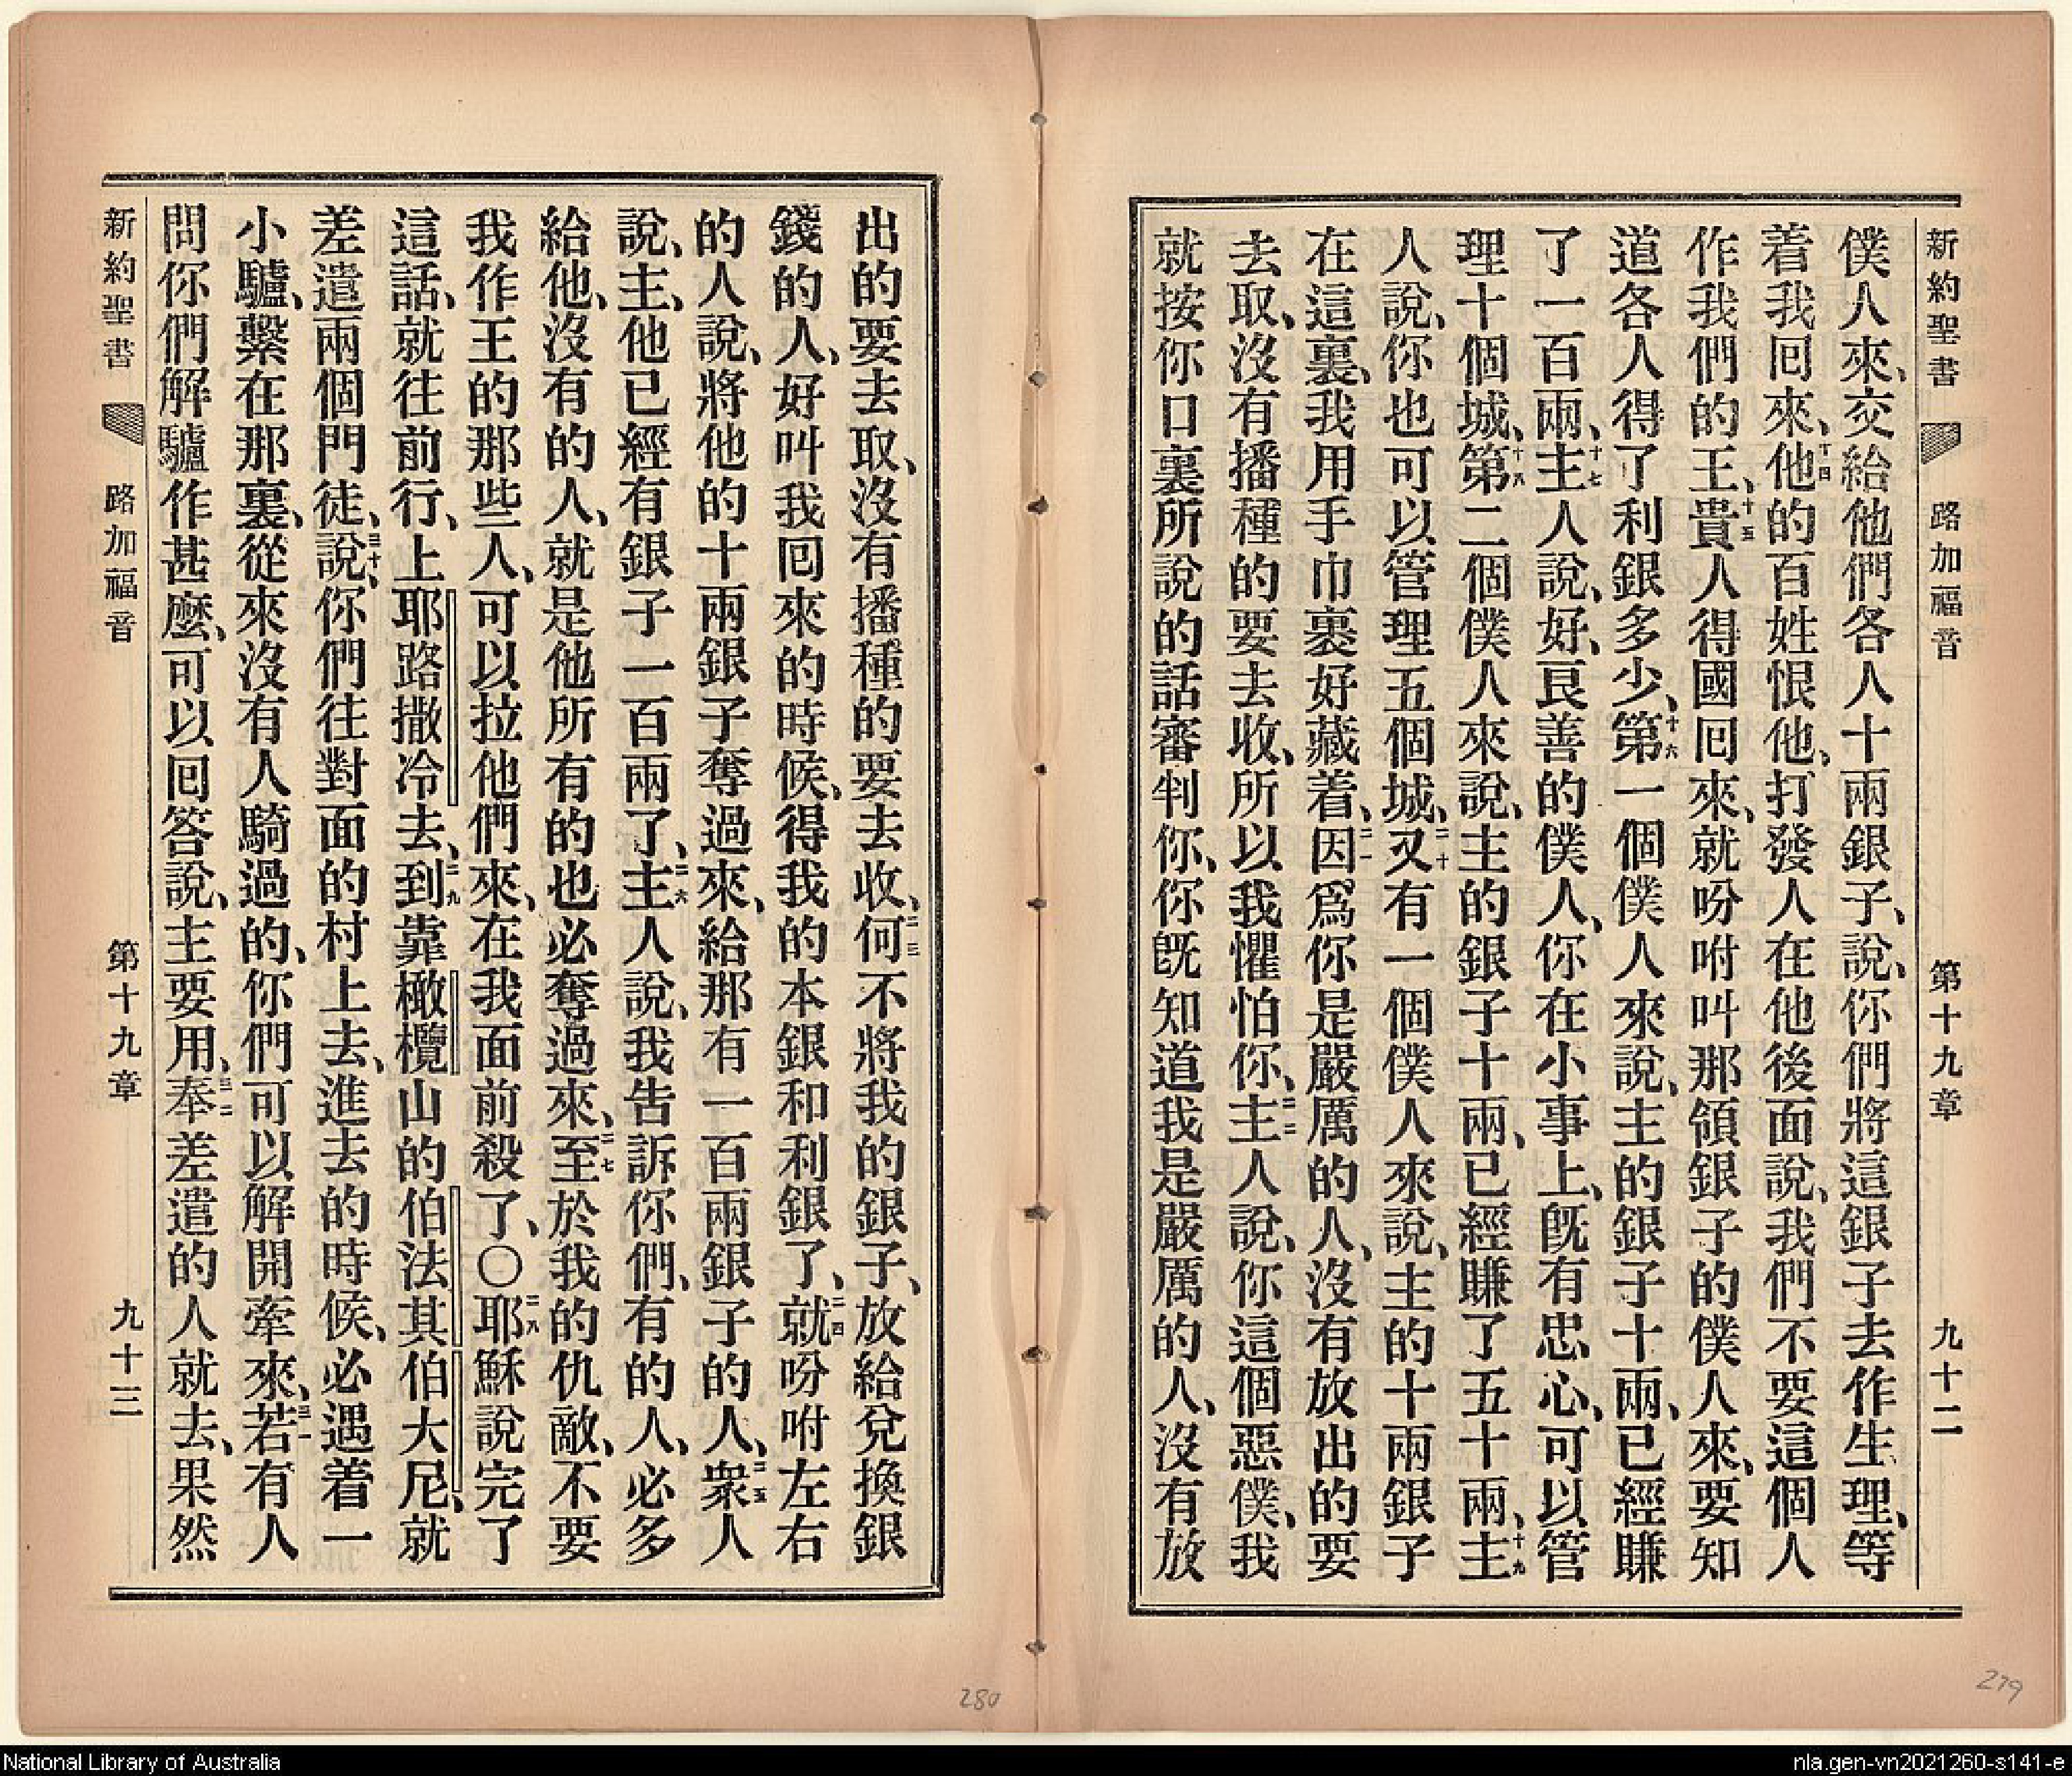 新約聖書 路加福音 第十九章 九十二
僕人來、交給他們各人十兩銀子、說、你們將這銀子去作生理、等
着我囘來、十四他的百姓恨他、打發人在他後面說、我們不要這個人
作我們的王、十五貴人得國囘來、就吩咐叫那領銀子的僕人來、要知
道各人得了利銀多少、十六第一個僕人來說、主的銀子十兩、已經賺
了一百兩、十七主人說、好、良善的僕人、你在小事上、旣有忠心、可以管
理十個城、十八第二個僕人來說、主的銀子十兩、已經賺了五十兩、十九主
人說、你也可以管理五個城、二十又有一個僕人來說、主的十兩銀子
在這裏、我用手巾裹好藏着、二一因爲你是嚴厲的人、沒有放出的要
去取、沒有播種的要去收、所以我懼怕你、二二主人說、你這個惡僕、我
就按你口裏所說的話審判你、你旣知道我是嚴厲的人、沒有放
出的要去取、沒有播種的要去收、二三何不將我的銀子、放給兌換銀
錢的人、好叫我囘來的時候、得我的本銀和利銀了、二四就吩咐左右
的人說、將他的十兩銀子奪過來、給那有一百兩銀子的人、二五衆人
說、主、他已經有銀子一百兩了、二六主人說、我告訴你們、有的人、必多
給他、沒有的人、就是他所有的也必奪過來、二七至於我的仇敵、不要
我作王的那些人、可以拉他們來、在我面前殺了、〇二八耶穌說完了
這話、就往前行、上耶路撒冷去、二九到靠橄欖山的伯法其伯大尼、就
差遣兩個門徒、三十說、你們往對面的村上去、進去的時候、必遇着一
小驢、繫在那裏、從來沒有人騎過的、你們可以解開牽來、三一若有人
問你們解驢作甚麼、可以囘答說、主要用、三二奉差遣的人就去、果然
新約聖書 路加福音 第十九章 九十三
280
279
National Library of Australia
nla.gen-vn2021260-s141-e